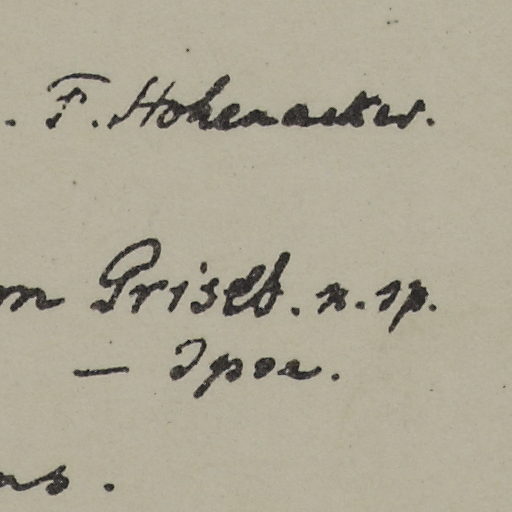 . F. Hohenacker.
m Griseb. n. sp.
— Ipoa.
ns.